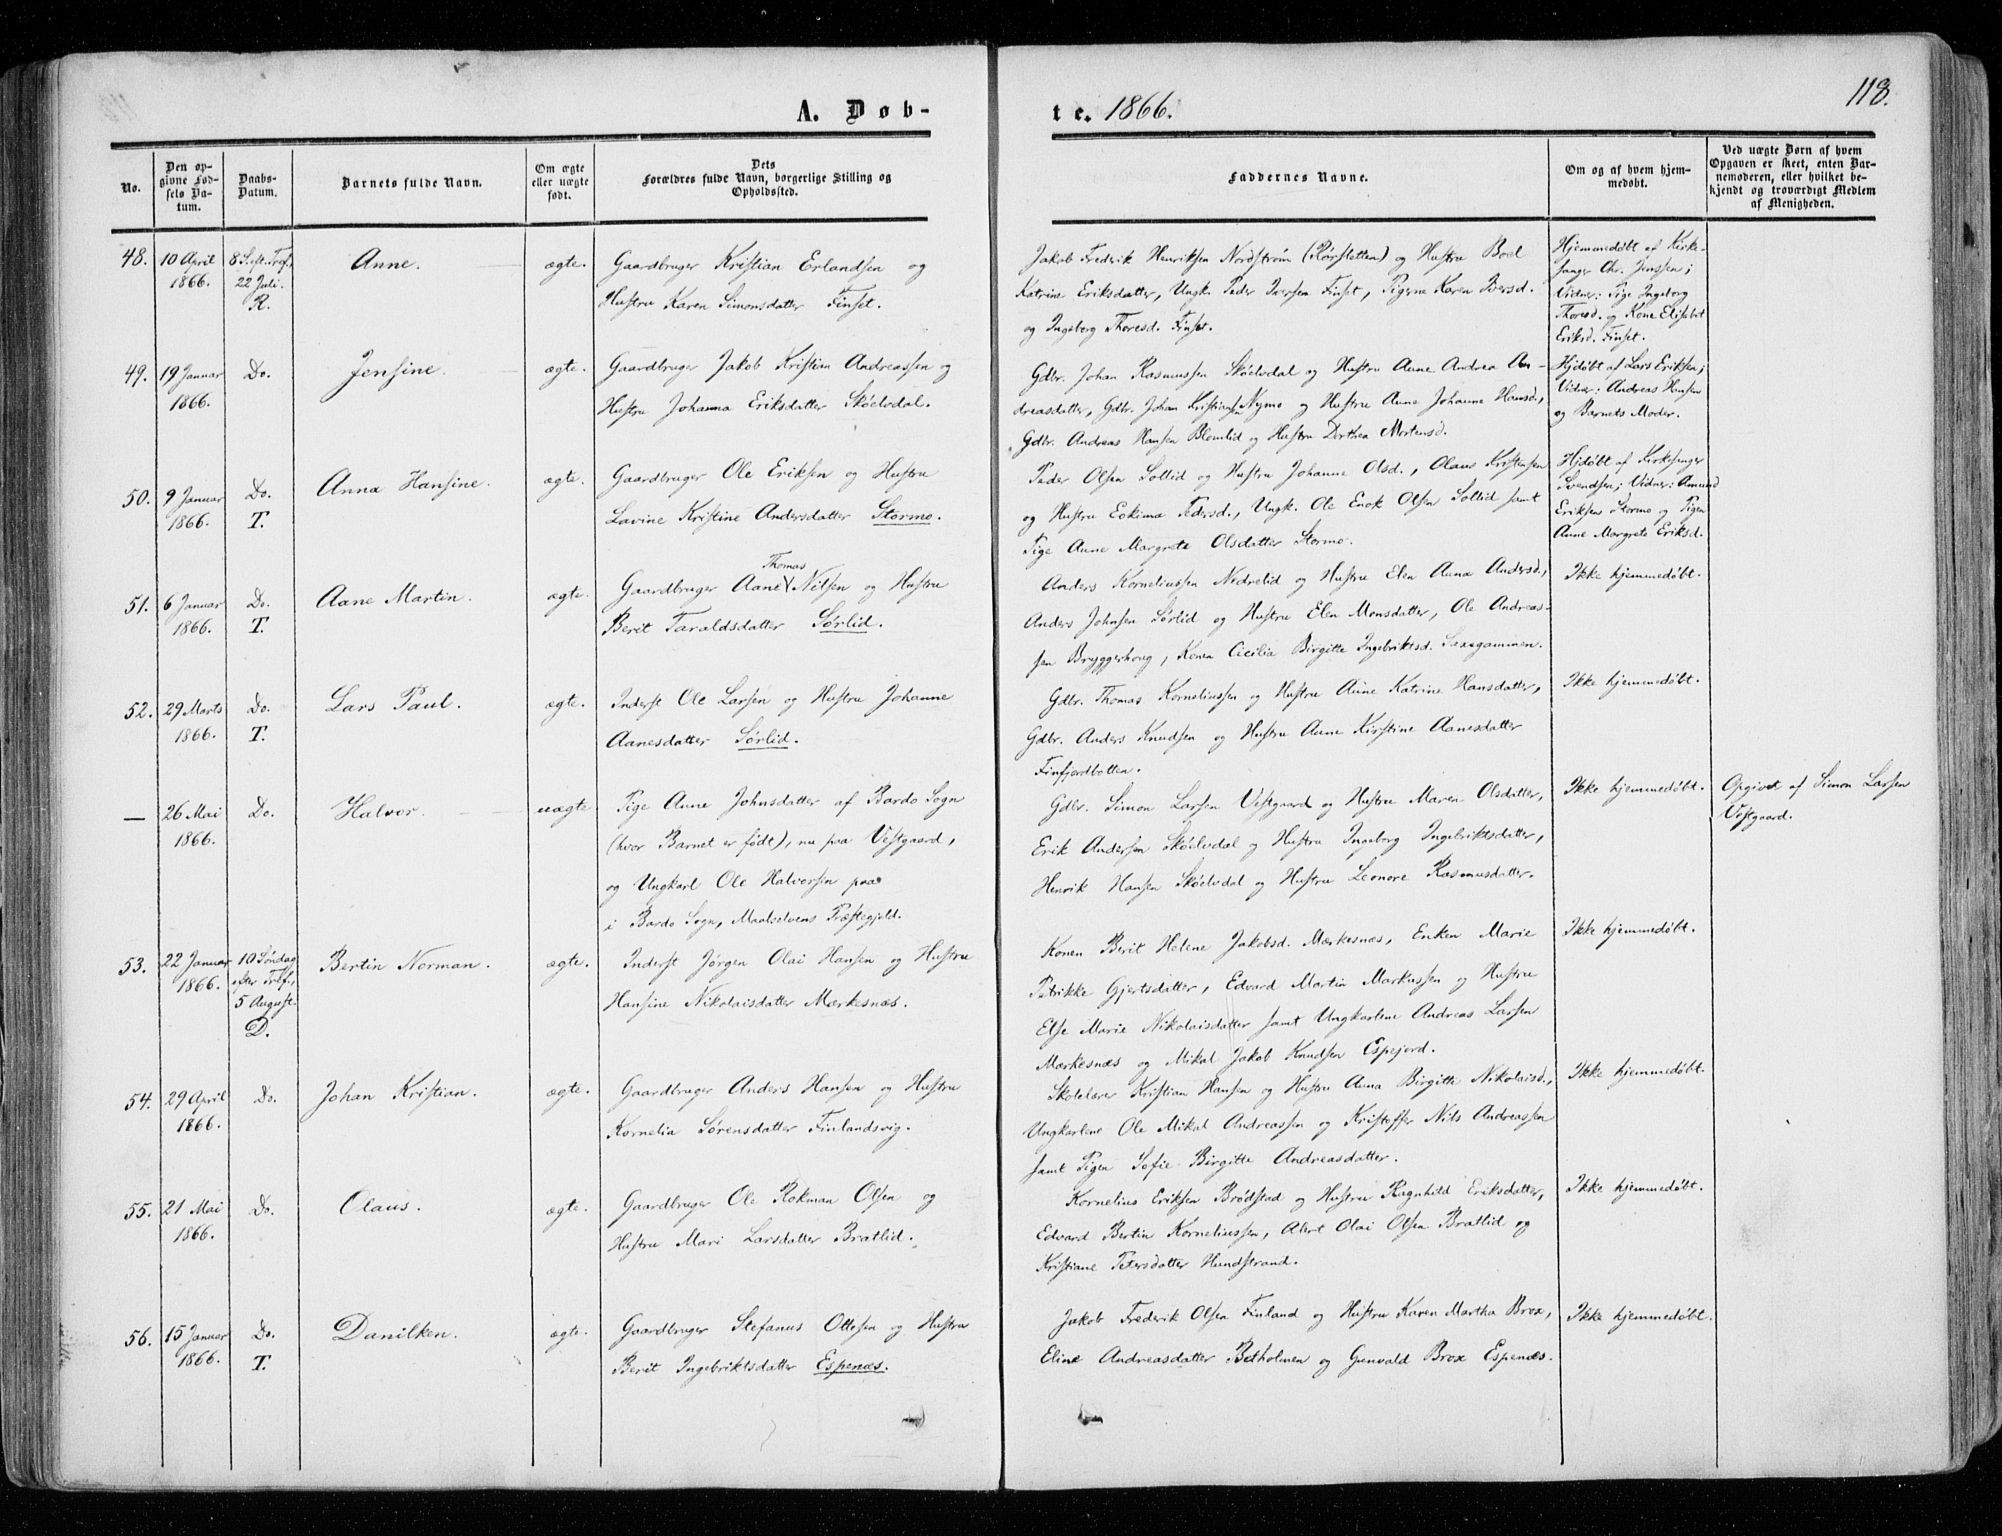 118.
A. Døb-
te. 1866.
No.
Den op-
givne Fød-
sels Da-
tum.
Daabs-
Datum.
Barnets fulde Navn.
Om ægte
eller uægte
født.
Dets
Forældres fulde Navn, borgerlige Stilling og
Opholdssted.
Faddernes Navne.
Om og af hvem hjem-
medøbt.
Ved uægte Børn af hvem
Opgaven er skeet, enten Bar-
nemoderen, eller hvilket be-
kjendt og troværdigt Medlem
af Menigheden.
48.
10 April
1866.
8 S. eft. Tref.
22 Juli.
R.
Anne.
ægte.
Gaardbruger Kristian Erlandsen og
Hustru Karen Simonsdatter Finset.
Jakob Frederik Henriksen Nordstrøm (Rørsletten) og Hustru Boel
Katrine Eriksdatter, Ungk. Peder Iversen Finset, Pigerne Karen Iversd.
og Ingeborg Thoresd. Finset.
Hjemmedøbt af Kirke-
sanger Chr. Jenssen;
Vidner: Pige Ingeborg
Thoresd. og Kone Elisabet
Eriksd. Finset.
49.
19 Januar
1866.
Do.
Jensine.
ægte.
Gaardbruger Jakob Kristian Andreassen og
Hustru Johanna Eriksdatter Skøelvdal.
Gdbr. Johan Rasmussen Skøelvdal og Hustru Anne Andrea An-
dreasdatter, Gdbr. Johan Kristiansen Nymo og Hustru Anne Johanne Hansd.,
Gdbr. Andreas Hansen Blomlid og Hustru Dorthea Mortensd.
Hjdøbt af Lars Eriksen;
Vidner: Andreas Hansen
og Barnets Moder.
50.
9 Januar
1866.
Do.
T.
Anna Hansine.
ægte.
Gaardbruger Ole Eriksen og Hustru
Lavine Kristine Andersdatter Stormo.
Peder Olsen Sollid og Hustru Johanne Olsd., Olaus Kristensen
og Hustru Eckima Pedersd., Ungk. Ole Enok Olsen Sollid samt
Pige Anne Margrete Olsdatter Stormo.
Hjdøbt af Kirkesanger
Svendsen; Vidner: Amund
Eriksen Stormo og Pigen
Anne Margrete Eriksd.
51.
6 Januar
1866.
Do.
T.
Aane Martin.
ægte.
Thomas
Gaardbruger Aane Nilsen og Hustru
Berit Taraldsdatter Sørlid.
Anders Korneliussen Nedrelid og Hustru Elen Anna Andersd.,
Anders Johnsen Sørlid og Hustru Elen Monsdatter, Ole Andreas-
sen Bryggerhoug, Konen Cicilia Birgitte Ingebriktsd. Saxegammen.
Ikke hjemmedøbt.
52.
29 Marts
1866.
Do.
T.
Lars Paul.
ægte.
Inderst Ole Larsen og Hustru Johanne
Aanesdatter Sørlid.
Gdbr. Thomas Korneliussen og Hustru Anne Katrine Hansdatter,
Gdbr. Anders Knudsen og Hustru Anne Kirstine Aanesdatter
Finfjordbotten.
Ikke hjemmedøbt.
—
26 Mai
1866.
Do.
Halvor.
uægte
Pige Anne Johnsdatter af Bardo Sogn
(hvor Barnet er født), nu paa Vestgaard,
og Ungkarl Ole Halvorsen paa
i Bardo Sogn, Maalselvens Præstegjeld.
Gdbr. Simon Larsen Vestgaard og Hustru Maren Olsdatter,
Erik Andersen Skøelvdal og Hustru Ingeborg Ingebriktsdatter,
Henrik Hansen Skøelvdal og Hustru Leonore Rasmusdatter.
Ikke hjemmedøbt.
Opgivet af Simon Larsen
Vestgaard.
53.
22 Januar
1866.
10 Søndag
efter Tref.,
5 August.
D.
Bertin Norman.
ægte.
Inderst Jørgen Olai Hansen og Hustru
Hansine Nikolaisdatter Mærkesnæs.
Konen Berit Helene Jakobsd. Mærkesnæs, Enken Marie
Petrikke Gjertsdatter, Edvard Martin Markussen og Hustru
Else Marie Nikolaisdatter samt Ungkarlene Andreas Larsen
Mærkesnæs og Mikal Jakob Knudsen Espejord.
Ikke hjemmedøbt.
54.
29 April
1866.
Do.
Johan Kristian.
ægte.
Gaardbruger Anders Hansen og Hustru
Kornelia Sørensdatter Finlandsvig.
Skolelærer Kristian Hansen og Hustru Anna Birgitte Nikolaisd.,
Ungkarlene Ole Mikal Andreassen og Kristoffer Nils Andreassen
samt Pigen Sofie Birgitte Andreasdatter.
Ikke hjemmedøbt.
55.
21 Mai
1866.
Do.
Olaus.
ægte.
Gaardbruger Ole Rokman Olsen og
Hustru Mari Larsdatter Bratlid.
Kornelius Eriksen Brødstad og Hustru Ragnhild Eriksdatter,
Edvard Bertin Korneliussen, Albert Olai Olsen Bratlid og
Kristiane Petersdatter Hundstrand.
Ikke hjemmedøbt.
56.
15 Januar
1866.
Do.
T.
Danilken.
ægte.
Gaardbruger Stefanus Ottesen og Hustru
Berit Ingebriktsdatter Espenæs.
Jakob Frederik Olsen Finland og Hustru Karen Martha Brox,
Eline Andreasdatter Betholmen og Gunvald Brox Espenæs.
Ikke hjemmedøbt.